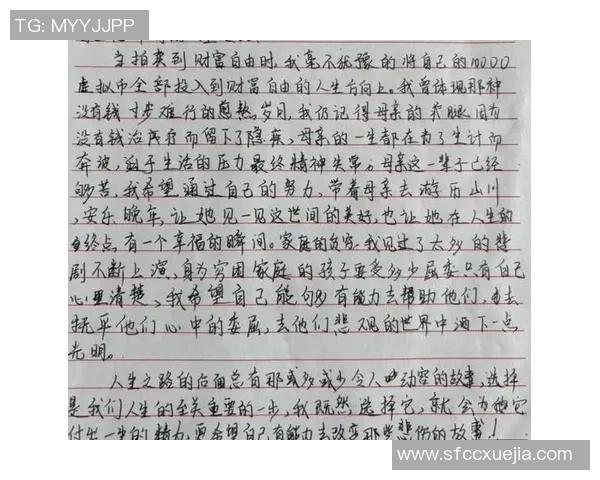 TG: MYYJJPP
当拍卖到财富自由时,我毫不犹豫的将自己的10000
虚拟币全部投入到财富自由的人生方向上。我曾体现那种
没有钱寸步难行的煎熬岁月,我仍记得母亲的夹腿因为
没有钱治疗而留下了隐疾、母亲的一生都在为了生计而
奔波,迫于生活的压力最终精神失常。母亲这一辈子已经
够苦,我希望通过自己的努力,带着母亲去游历山川
、安乐晚年,让她见一见这世间的美好,也让她在人生的
终点有一个幸福的瞬间。家庭的贫穷,我见过了太多的悲
剧不断上演、身为穷困家庭的孩子要受多少屈委只有自己
心里清楚、我希望自己能够有能力去帮助他们,去
抚平他们心中的委屈,去他们悲观的世界中洒下一点
光明。
人生之路的后面总有那或多或少令人动容的故事,选择
是我们人生的至关重要的一步,我既然选择它,就会为他
付出一生的精力,更希望自己有能力去改变那些悲伤的故事!
www.sfccxuejia.com